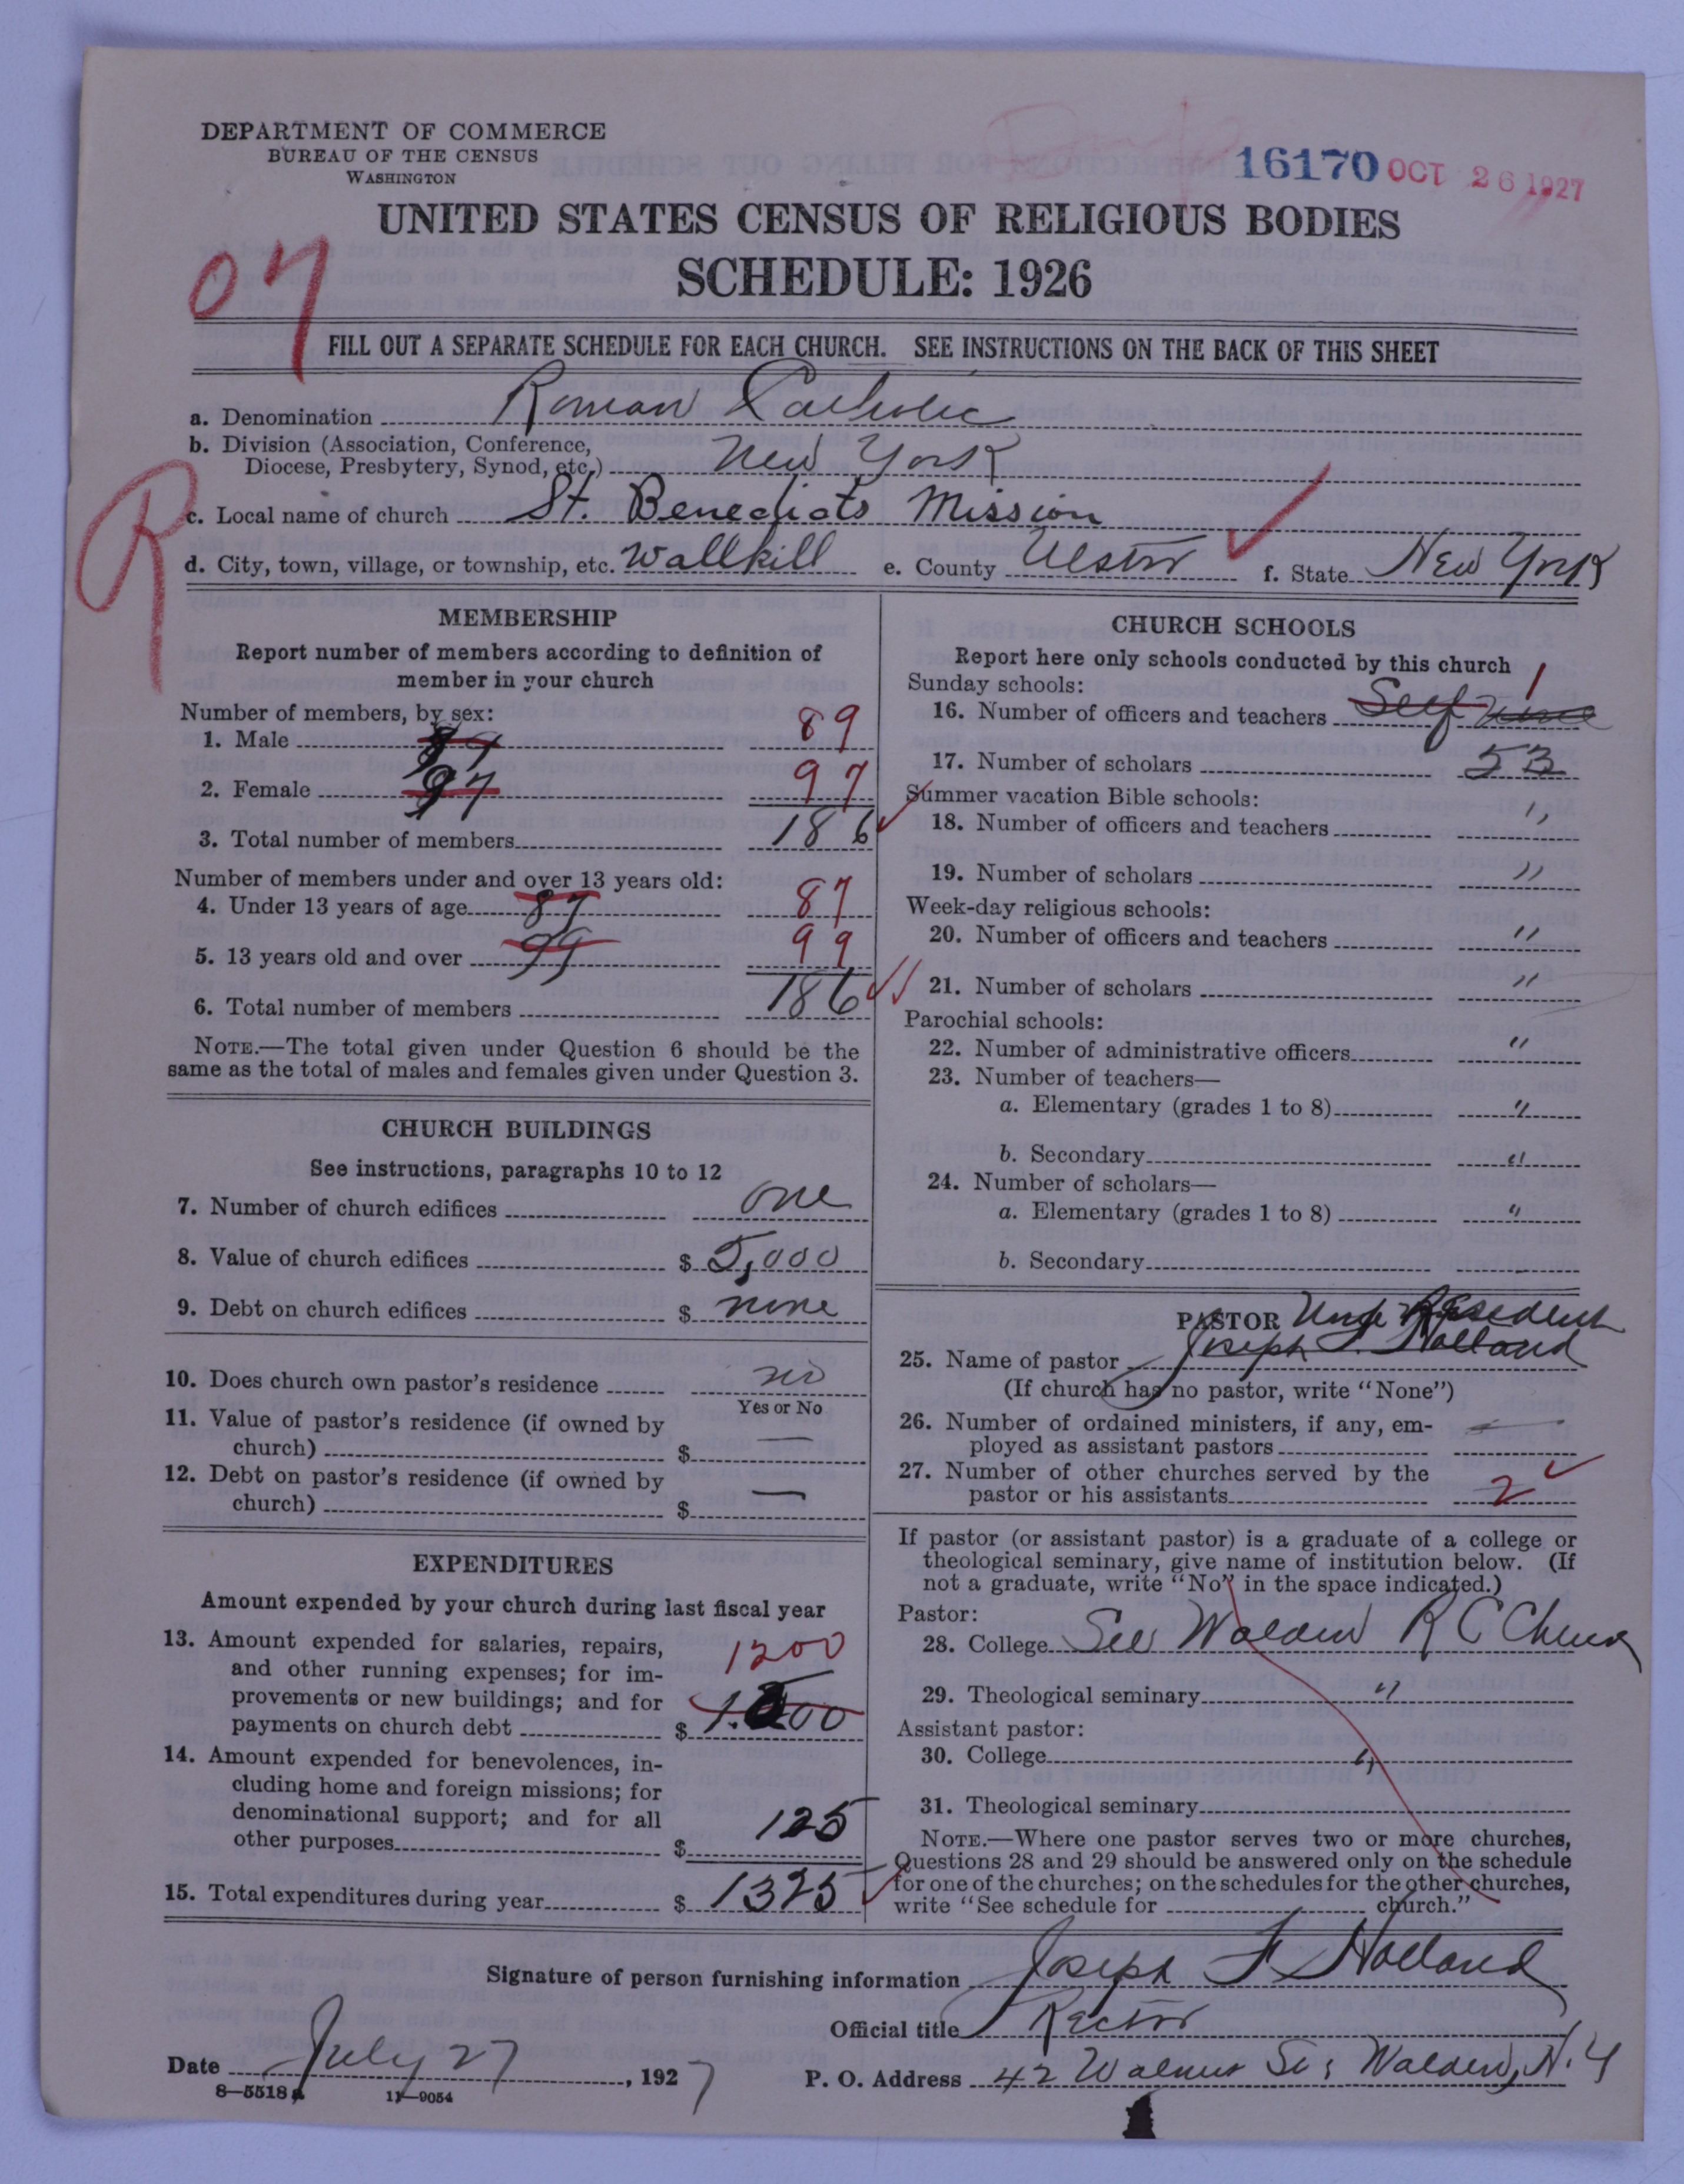 DEPARTMENT OF COMMERCE
BUREAU OF THE CENSUS
WASHINGTON
16170 OCT 26 1927
UNITED STATES CENSUS OF RELIGIOUS BODIES
SCHEDULE: 1926
07
FILL OUT A SEPARATE SCHEDULE FOR EACH CHURCH. SEE INSTRUCTIONS ON THE BACK OF THIS SHEET
a. Denomination Roman Catholic
b. Division (Association, Conference,
Diocese, Presbytery, Synod, etc.) New York
R
c. Local name of church St. Benedicts Mission
d. City, town, village, or township, etc. Wallkill e. County Ulster f. State New York
MEMBERSHIP
Report number of members according to definition of
member in your church
Number of members, by sex:
1. Male 89 89
2. Female 97 97
3. Total number of members 186
Number of members under and over 13 years old:
4. Under 13 years of age 87 87
5. 13 years old and over 99 99
6. Total number of members 186
NOTE.—The total given under Question 6 should be the
same as the total of males and females given under Question 3.
CHURCH BUILDINGS
See instructions, paragraphs 10 to 12
7. Number of church edifices one
8. Value of church edifices $ 5,000
9. Debt on church edifices $ none
10. Does church own pastor's residence no
Yes or No
11. Value of pastor's residence (if owned by
church) $ —
12. Debt on pastor's residence (if owned by
church) $ —
EXPENDITURES
Amount expended by your church during last fiscal year
13. Amount expended for salaries, repairs,
and other running expenses; for im-
provements or new buildings; and for
payments on church debt $
1200
14. Amount expended for benevolences, in-
cluding home and foreign missions; for
denominational support; and for all
other purposes $ 125
15. Total expenditures during year $ 1325
CHURCH SCHOOLS
Report here only schools conducted by this church
Sunday schools:
1
16. Number of officers and teachers Self
17. Number of scholars 53
Summer vacation Bible schools:
18. Number of officers and teachers "
19. Number of scholars "
Week-day religious schools:
20. Number of officers and teachers "
21. Number of scholars "
Parochial schools:
22. Number of administrative officers "
23. Number of teachers—
a. Elementary (grades 1 to 8) "
b. Secondary "
24. Number of scholars—
a. Elementary (grades 1 to 8) "
b. Secondary
PASTOR
25. Name of pastor Joseph F. Holland
(If church has no pastor, write "None")
26. Number of ordained ministers, if any, em-
ployed as assistant pastors —
27. Number of other churches served by the
pastor or his assistants 2
If pastor (or assistant pastor) is a graduate of a college or
theological seminary, give name of institution below. (If
not a graduate, write "No" in the space indicated.)
Pastor:
28. College See Walden R C Church
29. Theological seminary "
Assistant pastor:
30. College "
31. Theological seminary
NOTE.—Where one pastor serves two or more churches,
Questions 28 and 29 should be answered only on the schedule
for one of the churches; on the schedules for the other churches,
write "See schedule for church."
Signature of person furnishing information Joseph F Holland
Official title Rector
Date July 27, 1927 P. O. Address 42 Walnut St; Walden, N.Y
8—5518a 11—9054